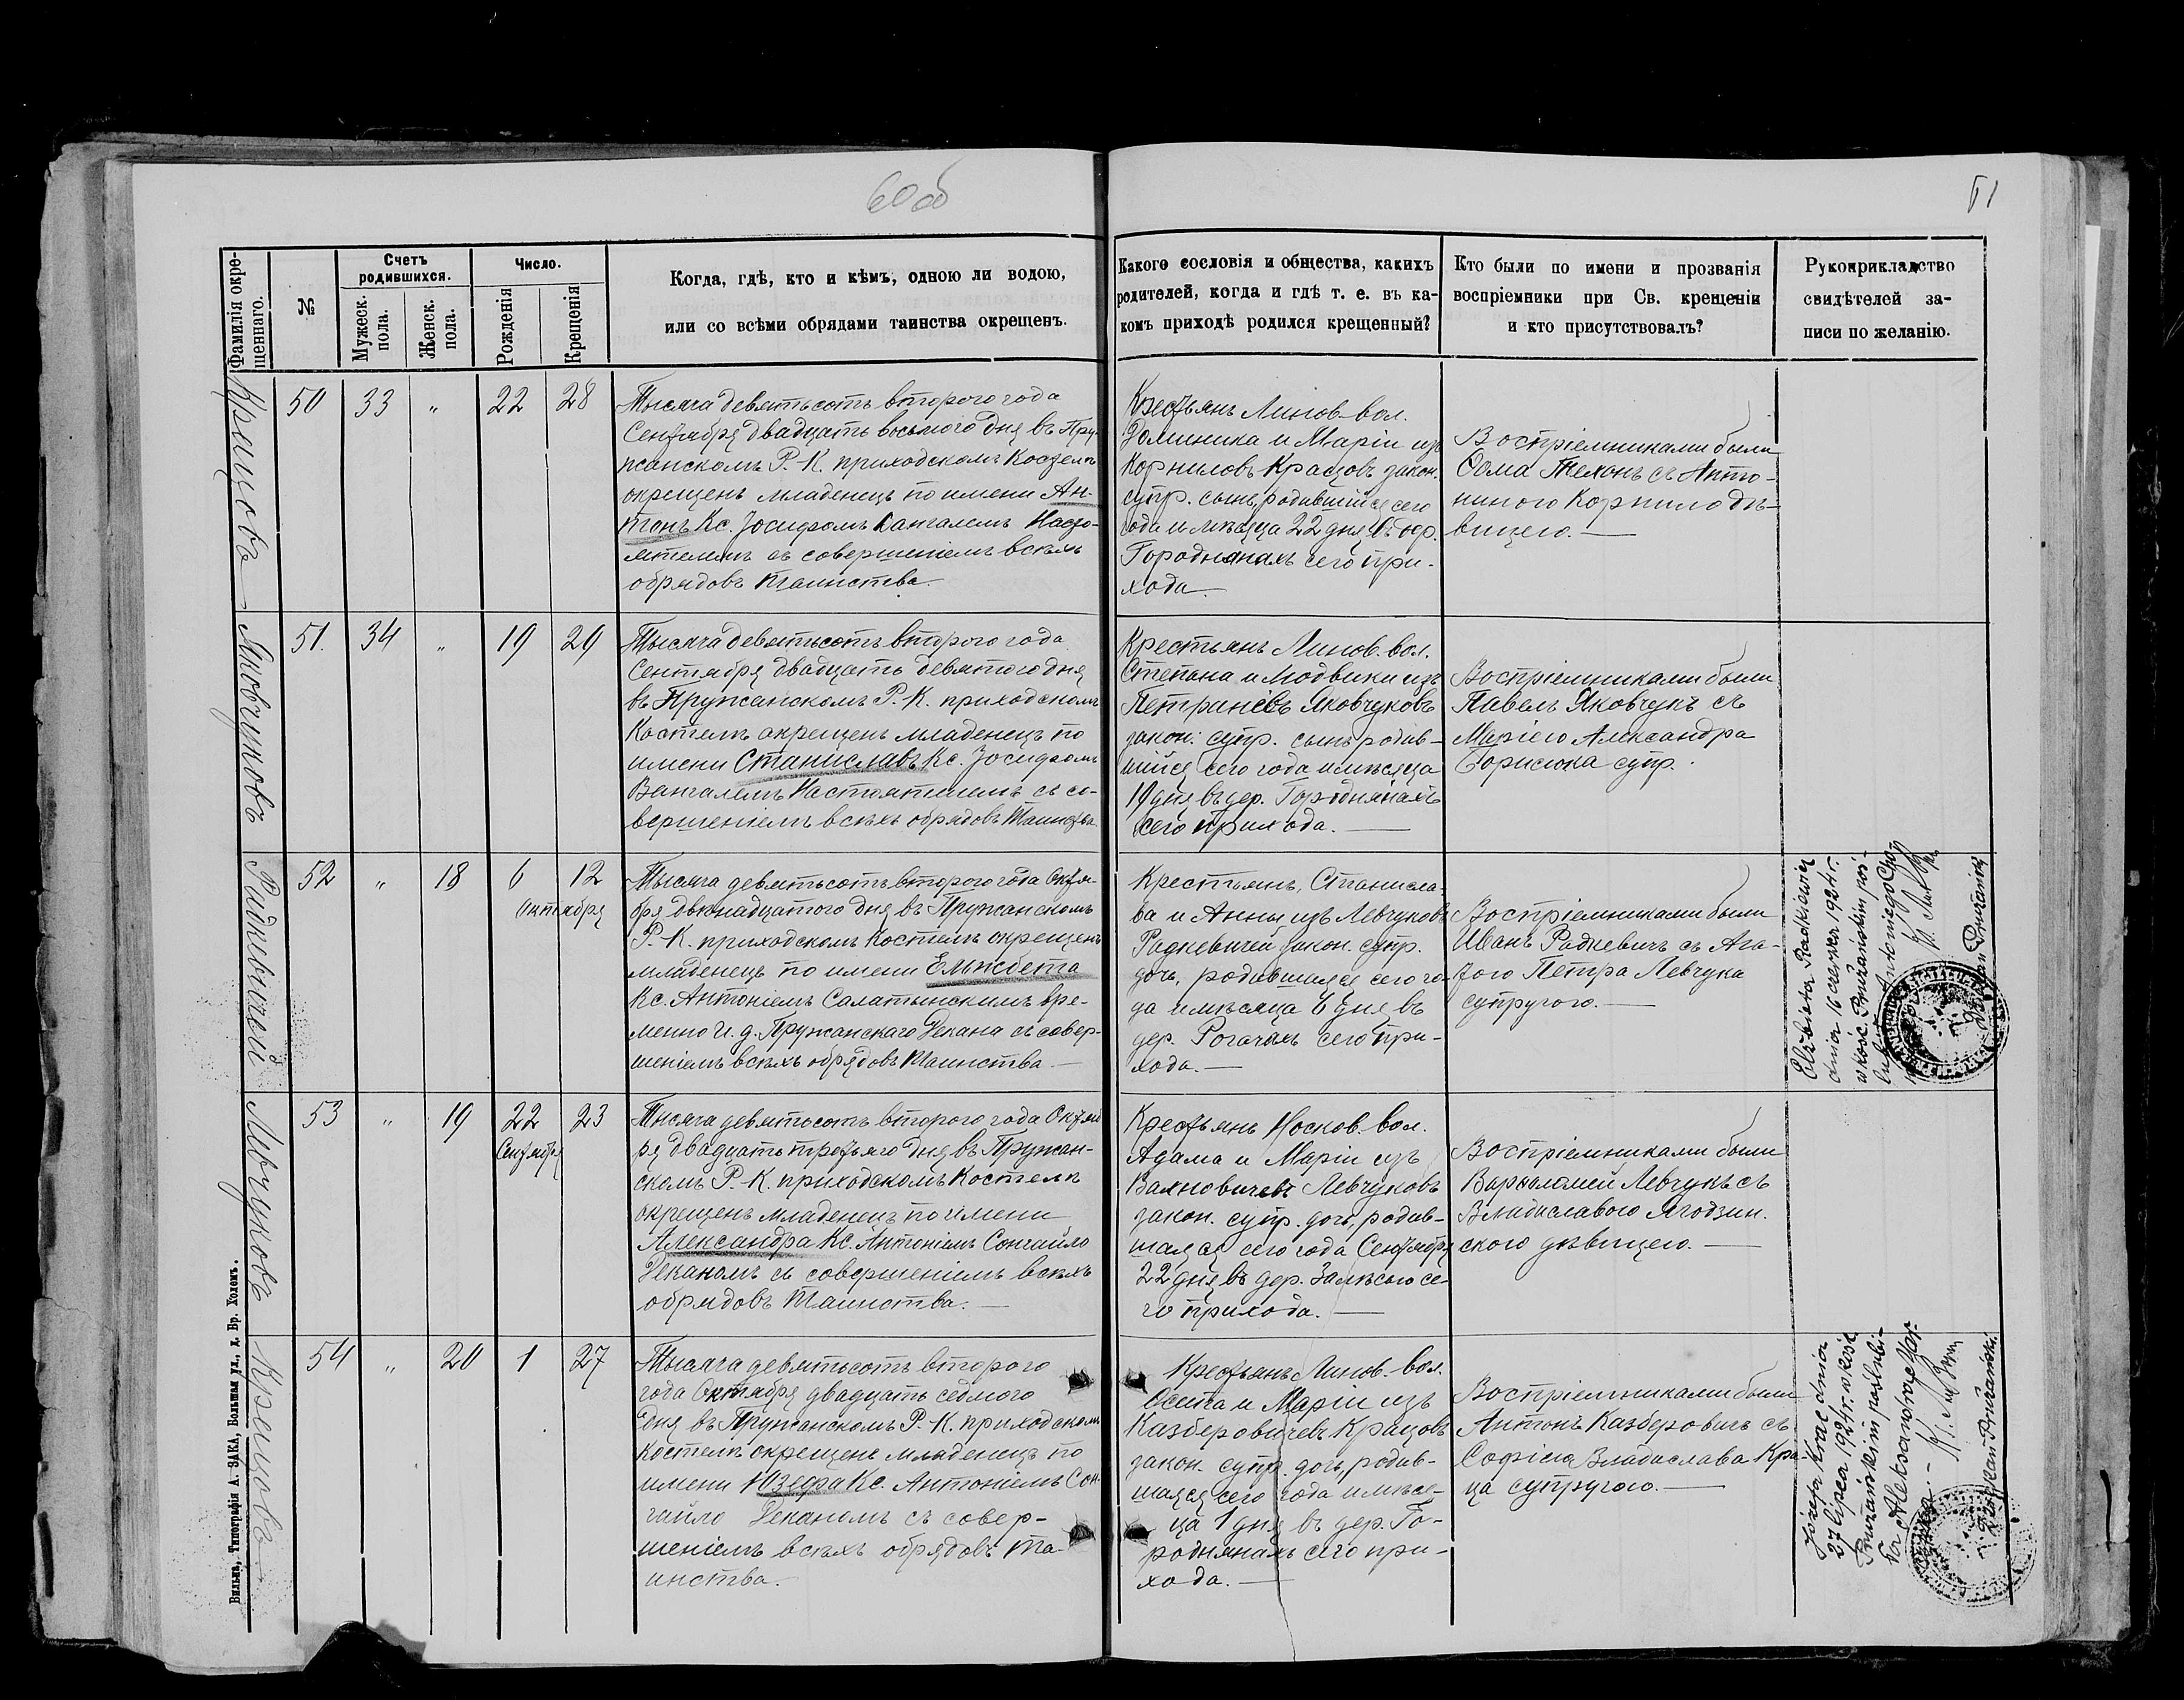 60 об
61
Фамилія окре-
щеннаго.
№
Счетъ
родившихся.
Мужеск.
пола.
Женск.
пола.
Число.
Рожденія
Крещенія
Когда, гдѣ, кто и кѣмъ, одною ли водою,
или со всѣми обрядами таинства окрещенъ.
Какого сословія и общества, какихъ
родителей, когда и гдѣ т. е. въ ка-
комъ приходѣ родился крещенный?
Кто были по имени и прозванія
воспріемники при Св. крещеніи
и кто присутствовалъ?
Рукоприкладство
свидѣтелей за-
писи по желанію.
Крацовъ
50
33
"
22
28
Тысяча девятьсотъ второго года
Сентября двадцать восьмого дня въ Пру-
жанскомъ Р.-К. приходскомъ Костелѣ
окрещенъ младенецъ по имени Ан-
тонъ Кс. Іосифомъ Вангалемъ Насто-
ятелемъ съ совершеніемъ всѣхъ
обрядовъ таинства.
Крестьянъ Линов. вол.
Доминика и Маріи изъ
Корниловъ Крацовъ закон.
супр. сынъ, родившійся сего
года и мѣсяца 22 дня въ дер.
Городнянахъ сего при-
хода.
Воспріемниками были
Ѳома Телокъ съ Анто-
ниною Корнило дѣ-
вицею.
Яковчуковъ
51.
34
"
19
29
Тысяча девятьсотъ второго года
Сентября двадцать девятого дня
въ Пружанскомъ Р.-К. приходскомъ
Костелѣ окрещенъ младенецъ по
имени Станиславъ Кс. Іосифомъ
Вангалемъ Настоятелемъ съ со-
вершеніемъ всѣхъ обрядовъ Таинства.
Крестьянъ Линов. вол.
Степана и Людвики изъ
Петраневъ Яковчуковъ
закон. супр. сынъ родив-
шійся сего года и мѣсяца
19 дня въ дер. Городнянахъ
сего прихода.
Воспріемниками были
Павелъ Яковчукъ съ
Маріею Александра
Борисюка супр.
Радкевичей
52
"
18
6
12
Октября
Тысяча девятьсотъ второго года Октя-
бря двѣнадцатого дня въ Пружанскомъ
Р.-К. приходскомъ Костелѣ окрещенъ
младенецъ по имени Ельжбета
Кс. Антоніемъ Салатынскимъ вре-
менно И. д. Пружанскаго Декана съ совер-
шеніемъ всѣхъ обрядовъ Таинства.
Крестьянъ, Станисла-
ва и Анны изъ Левчуковъ
Радкевичей закон. супр.
дочь, родившаяся сего го-
да и мѣсяца 6 дня въ
дер. Рогачахъ сего при-
хода.
Воспріемниками были
Иванъ Радкевичъ съ Ага-
тою Петра Левчука
супругою.
Elżbieta Radkiewicz
dnia 16 czerwca 1924 r.
w kośc. Prużańskim poś-
lubiła Antoniego
Dziekan Prużański
Левчуковъ
53
"
19
22
23
Сентября
Тысяча девятьсотъ второго года Октяб-
ря двадцать третьяго дня въ Пружан-
скомъ Р.-К. приходскомъ Костелѣ
окрещенъ младенецъ по имени
Александра Кс. Антоніемъ Сончайло
Деканомъ съ совершеніемъ всѣхъ
обрядовъ Таинства.
Крестьянъ Носков. вол.
Адама и Маріи изъ
Вахновичевъ Левчуковъ
закон. супр. дочь, родив-
шаяся сего года Сентября
22 дня въ дер. Залѣсью се-
го прихода.
Воспріемниками были
Варѳоломей Левчукъ съ
Владиславою Ягодзин.
скою дѣвицею.
Крацовъ
54
"
20
1
27
Тысяча девятьсотъ второго
года Октября двадцать седмого
дня въ Пружанскомъ Р.-К. приходскомъ
Костелѣ окрещенъ младенецъ по
имени Юзефа Кс. Антоніемъ Сон-
чайло Деканомъ съ совер-
шеніемъ всѣхъ обрядовъ Та-
инства.
Крестьянъ Линов. вол.
Осипа и Маріи изъ
Казберовичевъ Крацовъ
закон. супр. дочь, родив-
шаяся сего года и мѣся-
ца 1 дня въ дер. Го-
роднянахъ сего при-
хода.
Воспріемниками были
Антонъ Казберовичъ съ
Софіею Владислава Кра-
ца супругою.
Józefa Krac dnia
27 lipca 1924 r. w kośc.
Prużańskim poślubi-
ła Aleksandra
Dziekan Prużański.
Вильна, Типографія А. ЗАКА, Большая ул., д. Бр. Холемъ.